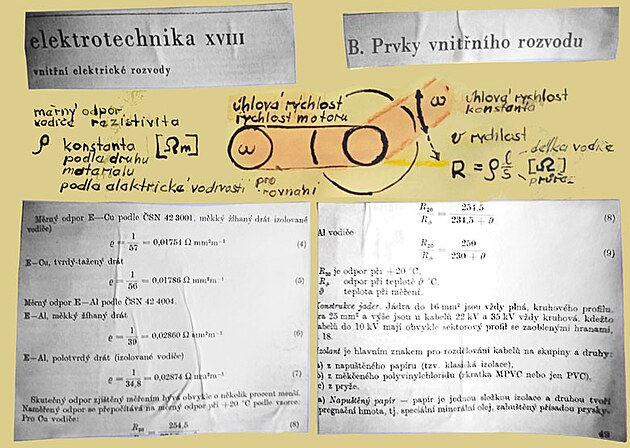 elektrotechnika XVIII
vnitřní elektrické rozvody
B. Prvky vnitřního rozvodu
měrný odpor
vodiče rezistivita
ρ konstanta [Ωm]
podla druhu
materialu
podla alaktrické vodivosti pro
rovnahi
úhlová rychlost
rychlost motoru
ω
ω
úhlová rychlost
konstanta
v rychlost
délka vodiče
R = ρ ℓ/S [Ω]
průřez
Měrný odpor E—Cu podle ČSN 42 3001, měkký žíhaný drát izolované
vodiče)
ϱ = 1/57 = 0,01754 Ω mm²m⁻¹ (4)
E—Cu, tvrdý-tažený drát
ϱ = 1/56 = 0,01786 Ω mm²m⁻¹ (5)
Měrný odpor E—Al podle ČSN 42 4004.
E—Al, měkký žíhaný drát
ϱ = 1/39 = 0,02860 Ω mm²m⁻¹ (6)
E—Al, polotvrdý drát (izolované vodiče)
ϱ = 1/34,8 = 0,02874 Ω mm²m⁻¹ (7)
Skutečný odpor zjištěný měřením bývá obvykle o několik procent menší.
Naměřený odpor se přepočítává na měrný odpor při +20 °C podle vzorce:
Pro Cu vodiče:
R20 254,5 (8)
R20/Rϑ = 254,5/234,5 + ϑ (8)
Al vodiče
R20/Rϑ = 250/230 + ϑ (9)
R20 je odpor při +20 °C,
Rϑ odpor při teplotě ϑ °C.
ϑ teplota při měření.
Konstrukce jader. Jádra do 16 mm² jsou vždy plná, kruhového profilu.
ra 25 mm² a výše jsou u kabelů 22 kV a 35 kV vždy kruhová, kdežto
kabelů do 10 kV mají obvykle sektorový profil se zaoblenými hranami,
18.
Izolant je hlavním znakem pro rozdělování kabelů na skupiny a druhy:
a) z napuštěného papíru (tzv. klasická izolace),
b) z měkčeného polyvinylchloridu (zkratka MPVC nebo jen PVC),
c) z pryže.
a) Napuštěný papír — papír je jednou složkou izolace a druhou tvoří
pregnační hmota, tj. speciální minerální olej, zahuštěný přísadou prysky-
49